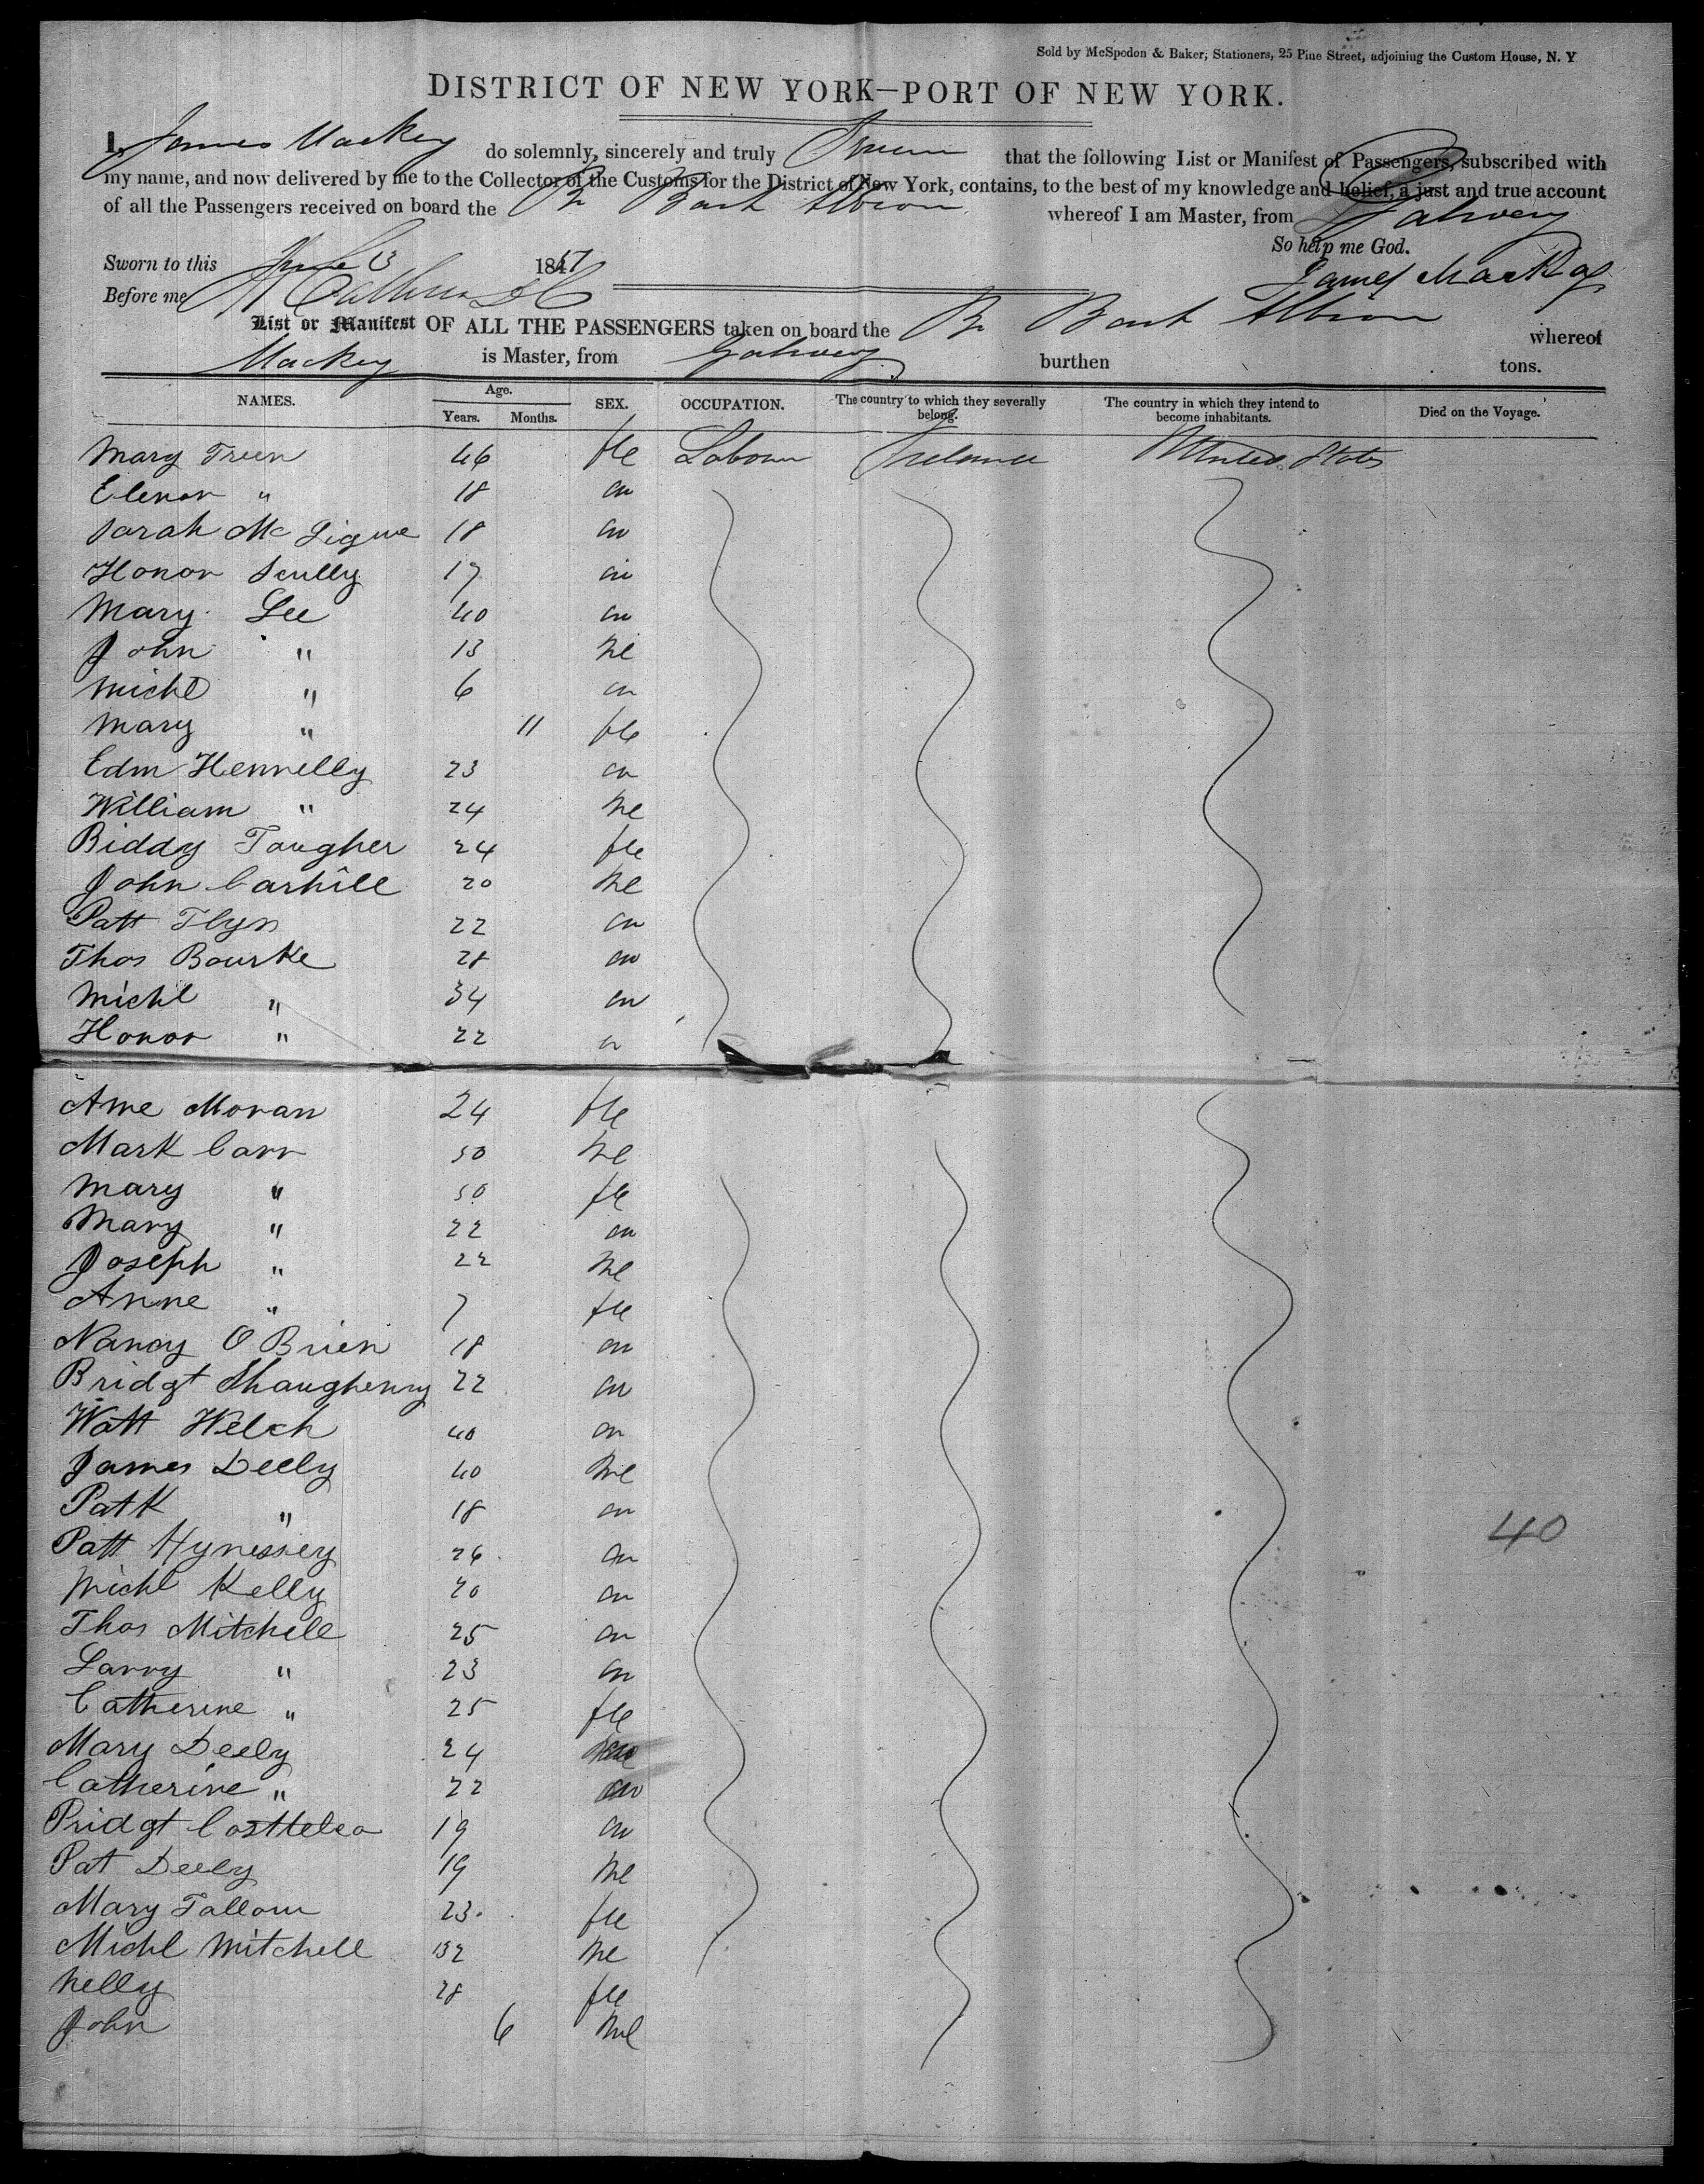 Sold by McSpedon & Baker, Stationers, 25 Pine Street, adjoining the Custom House, N. Y
DISTRICT OF NEW YORK—PORT OF NEW YORK.
I, James Mackey do solemnly, sincerely and truly Swear that the following List or Manifest of Passengers, subscribed with
my name, and now delivered by me to the Collector of the Customs for the District of New York, contains, to the best of my knowledge and belief, a just and true account
of all the Passengers received on board the Br Bark Albion whereof I am Master, from Galway
So help me God.
Sworn to this June 1847
James Mackay
Before me
List or Manifest OF ALL THE PASSENGERS taken on board the Br Bark Albion whereof
Mackey is Master, from Galway burthen tons.
NAMES. Age. Years. Months. SEX. OCCUPATION. The country to which they severally belong. The country in which they intend to become inhabitants. Died on the Voyage.
Mary Treen 46 fle Labour Ireland United States
Elenor " 18 "
Sarah Mc Tigue 18 "
Honor Scully 17 "
Mary Lee 40 "
John " 13 Me
Michl " 6 "
Mary " 11 fle
Edm Hennelly 23 "
William " 24 Me
Biddy Tougher 24 fle
John Carhill 20 Me
Patt Flyn 22 "
Thos Bourke 28 "
Michl " 34 "
Honor " 22 "
Anne Moran 24 fle
Mark Carr 50 Me
Mary " 50 fle
Mary " 22 "
Joseph " 22 Me
Anne " 7 fle
Nancy O Brien 18 "
Bridgt Shaughenry 22 "
Watt Welch 40 "
James Deely 40 Me
Patk " 18 "
Patt Hynessey 26 "
Michl Kelly 20 "
Thos Mitchell 25 "
Larry " 23 "
Catherine " 25 fle
Mary Deely 24
Catherine " 22 "
Bridgt Costteleo 19 "
Pat Deely 19 Me
Mary Fallon 23 fle
Michl Mitchell 32 Me
Nelly 28 fle
John 6 Me
40